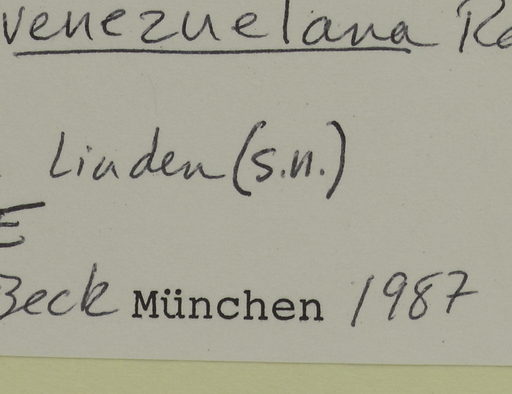 venezuelana
Linden (s.n.)
E
Beck München 1987